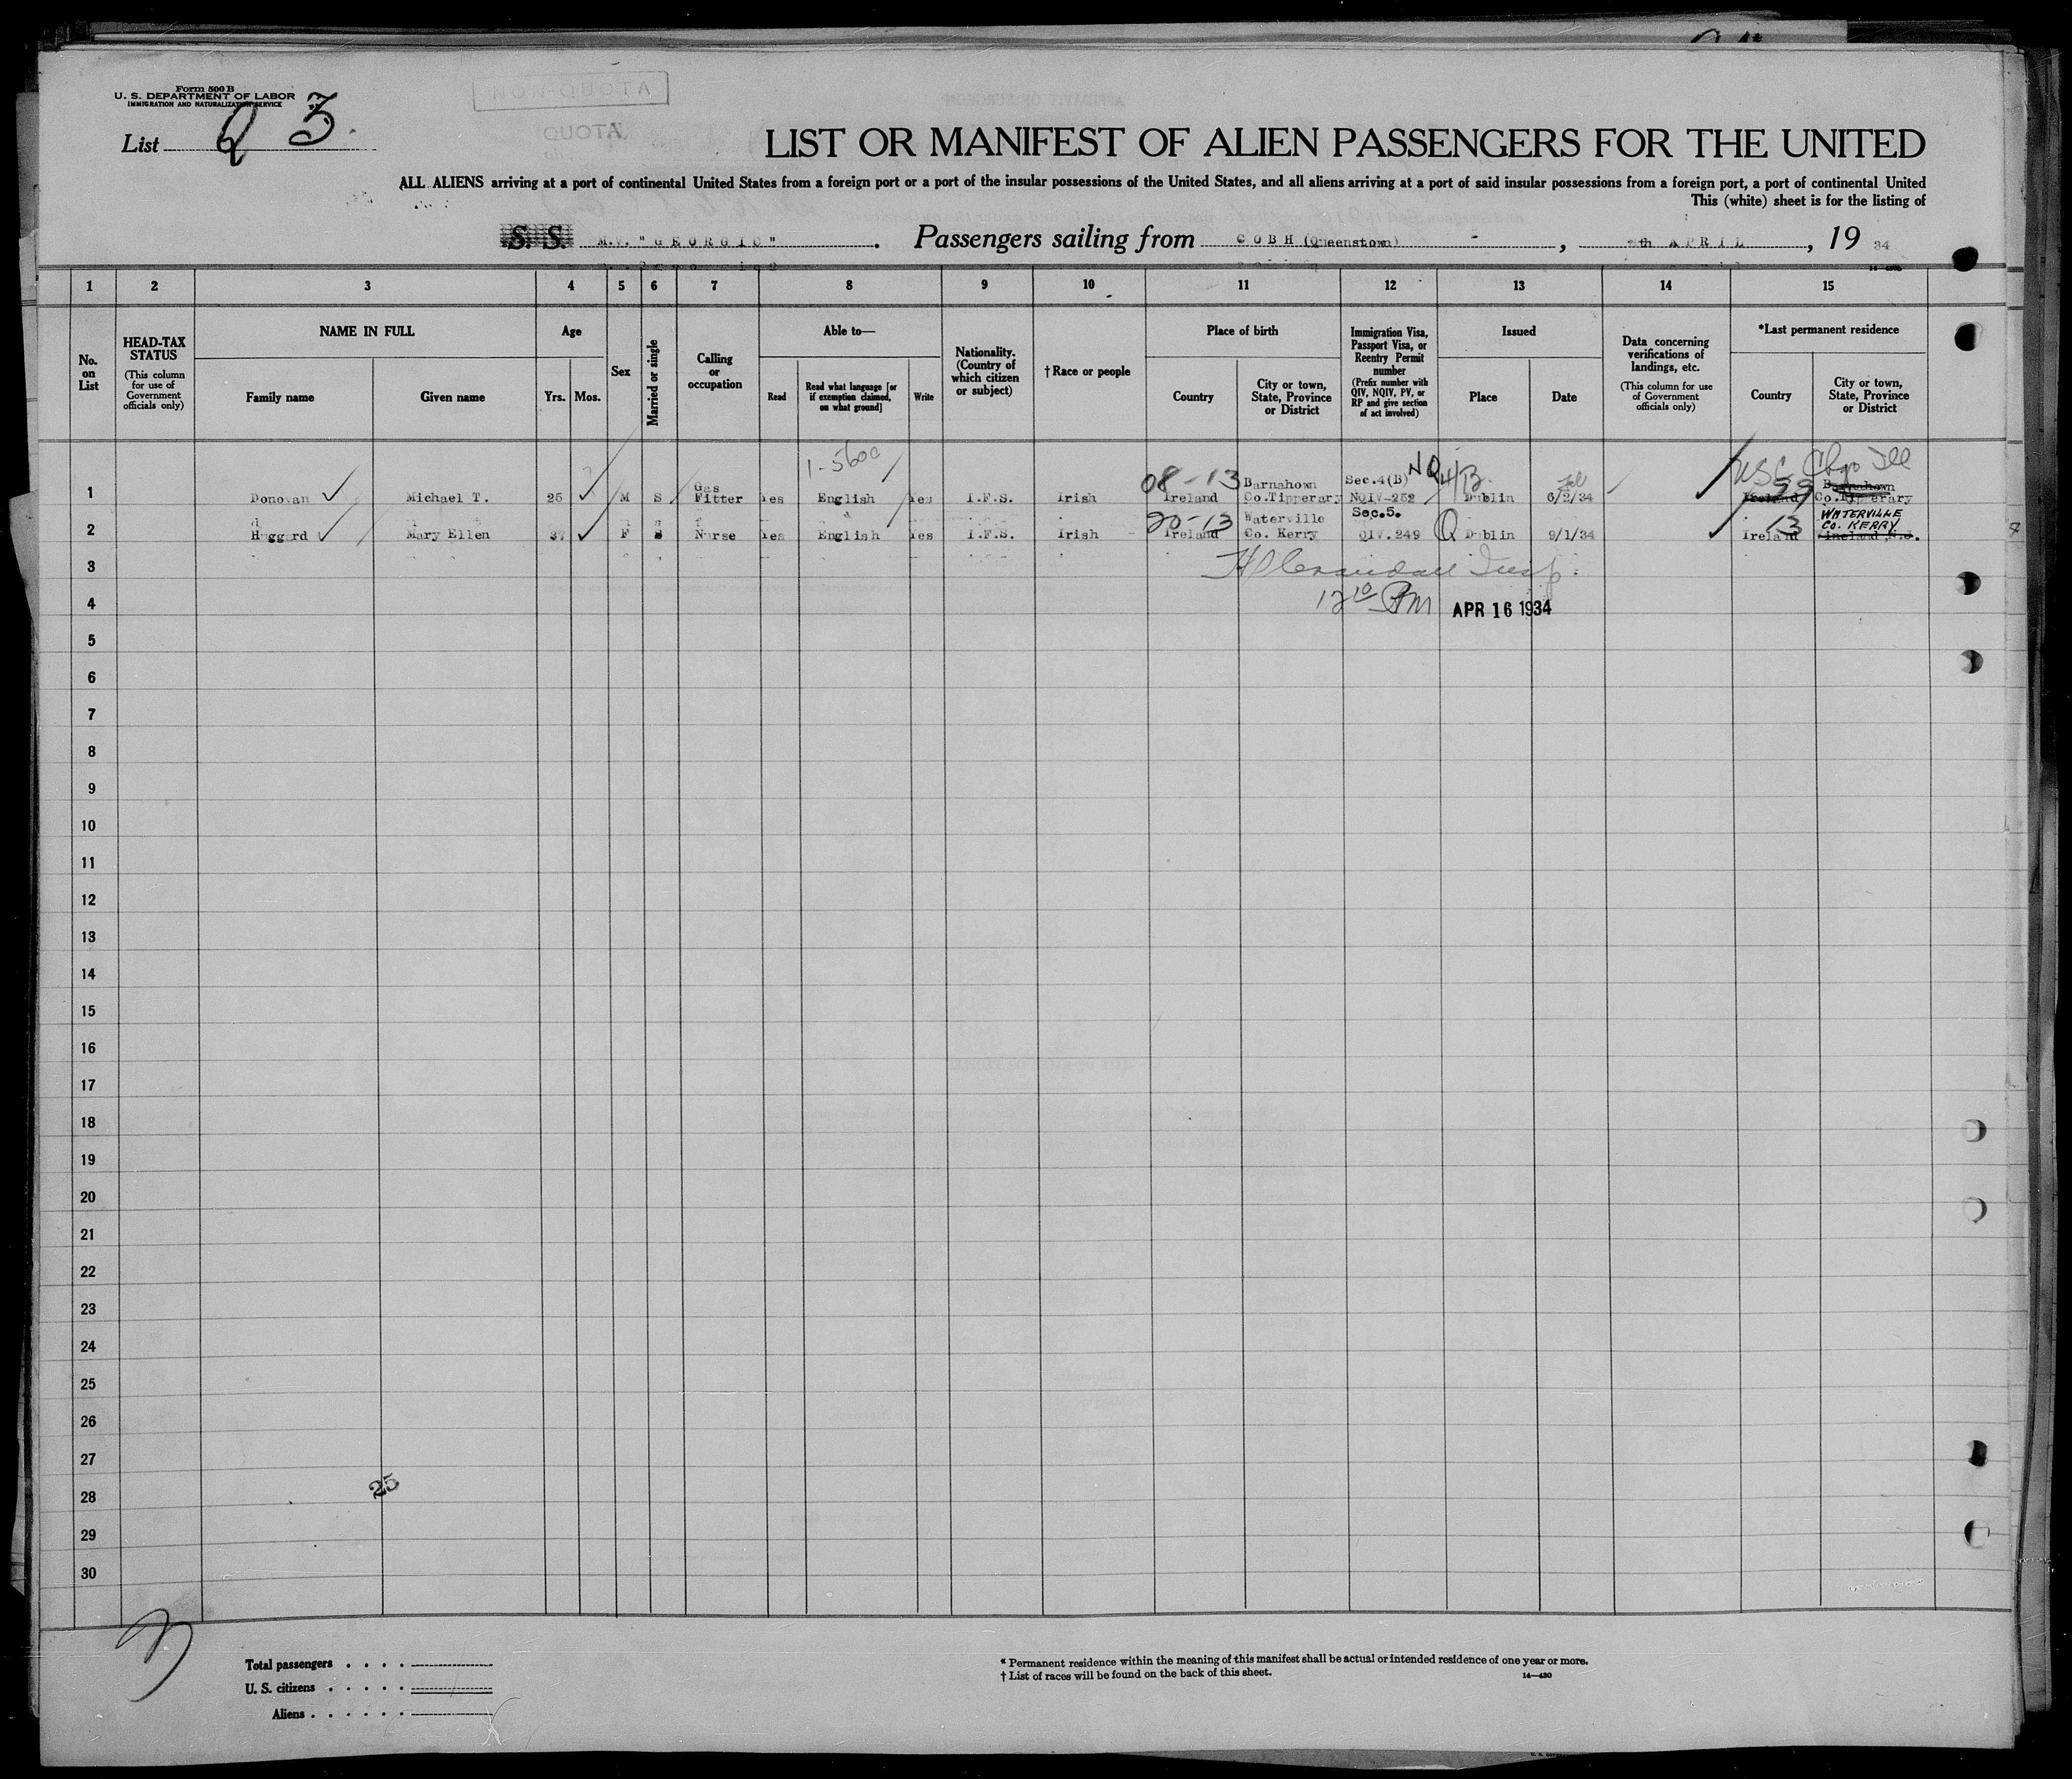 Form 500 B
U. S. DEPARTMENT OF LABOR
IMMIGRATION AND NATURALIZATION SERVICE
List Q 3.
NON-QUOTA
QUOTA
LIST OR MANIFEST OF ALIEN PASSENGERS FOR THE UNITED
ALL ALIENS arriving at a port of continental United States from a foreign port or a port of the insular possessions of the United States, and all aliens arriving at a port of said insular possessions from a foreign port, a port of continental United
This (white) sheet is for the listing of
S. S. M.V. "GEORGIC". Passengers sailing from COBH (Queenstown), th APRIL, 19 34
1 2 3 4 5 6 7 8 9 10 11 12 13 14 15
No. on List
HEAD-TAX STATUS (This column for use of Government officials only)
NAME IN FULL
Family name
Given name
Age
Yrs.
Mos.
Sex
Married or single
Calling or occupation
Able to—
Read
Read what language [or if exemption claimed, on what ground]
Write
Nationality. (Country of which citizen or subject)
† Race or people
Place of birth
Country
City or town, State, Province or District
Immigration Visa, Passport Visa, or Reentry Permit number (Prefix number with QIV, NQIV, PV, or RP and give section of act involved)
Issued
Place
Date
Data concerning verifications of landings, etc. (This column for use of Government officials only)
*Last permanent residence
Country
City or town, State, Province or District
1 Donovan Michael T. 25 M S Gas Fitter Yes English Yes I.F.S. Irish 08-13 Ireland Barnahown Co.Tipperary Sec.4(B) NQIV-252 NQ 4B Dublin 6/2/34 Feb USA 99 Ireland Chgo Ill Barnahown Co.Tipperary
2 Haggard Mary Ellen 37 F S Nurse Yes English Yes I.F.S. Irish 20-13 Ireland Waterville Co. Kerry Sec.5. QIV.249 Q Dublin 9/1/34 13 Ireland WATERVILLE CO. KERRY
3
4 12 10 PM APR 16 1934
5
6
7
8
9
10
11
12
13
14
15
16
17
18
19
20
21
22
23
24
25
26
27
28 25
29
30
Total passengers . . . .
U. S. citizens . . . . .
Aliens . . . . . .
* Permanent residence within the meaning of this manifest shall be actual or intended residence of one year or more.
† List of races will be found on the back of this sheet.
14—430